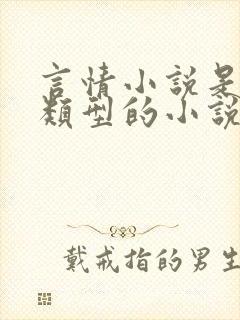 言情小説是
類型的小說
戴戒指的男生